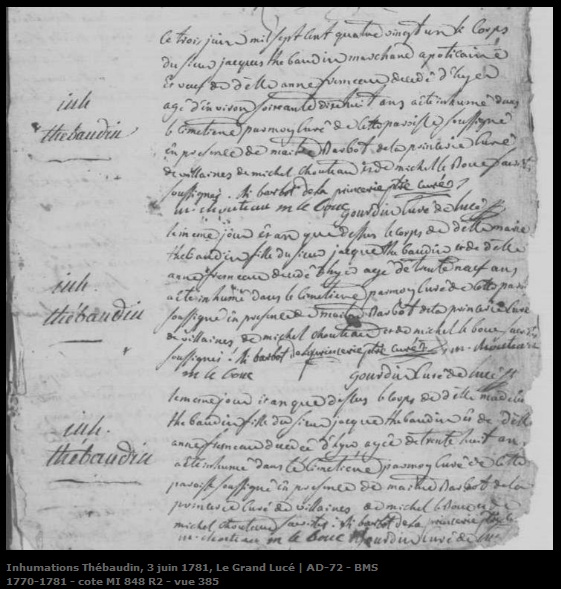 Le trois juin mil sept cent quatre vingt un le Corps
du sieur jacques thebaudin marchand apoticaire
Et veuf de d'elle anne fremeau decedé d'hyer
agé d'environ soixante dix huit ans a été inhumé dans
inh
thébaudin
le Cimetiere par moy Curé de Cette paroisse soussigné
en presence de maitre Barbot de la princerie Curé
de villaines de michel Chouteau et de michel le Bouc
soussignés. M. barbot de la princerie ptre curé
m. chouteau m le bouc gourdin Curé de lucé
le meme jour et an que dessus le corps de d'elle marie
thebaudin fille du sieur jacque thebaudin et de d'elle
inh
thébaudin
anne fremeau decedé d'hyer agé de trente neuf ans
a été inhumé dans le Cimetiere par moy Curé de Cette
soussigné en presence de maitre Barbot de la princerie Curé
de villaines de michel chouteau et de michel le bouc
soussignés. M. barbot de la princerie ptre curé m. chouteau
m le bouc gourdin Curé de lucé
le meme jour et an que dessus le corps de d'elle
inh.
thébaudin
thebaudin fille du sieur jacque thebaudin et de d'elle
anne fremeau decedée d'hyer agée de trente huit ans
a été inhumé dans le Cimetiere par moy Curé de Cette
paroisse soussigné en presence de maitre Barbot de la
princerie Curé de villaines de michel le Bouc et de
michel chouteau M. barbot de la princerie
m. chouteau m le bouc gourdin Curé de
Inhumations Thébaudin, 3 juin 1781, Le Grand Lucé | AD-72 - BMS
1770-1781 - cote MI 848 R2 - vue 385